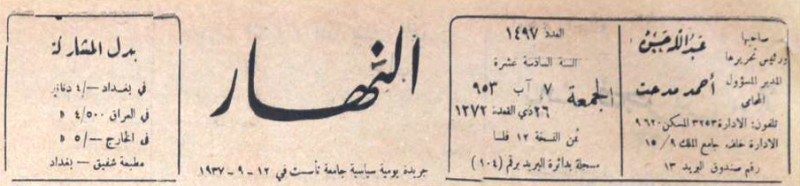 صاحبها
ورئيس تحريرها
عبدالله حسن
المدير المسؤول
المحامي
أحمد مدحت
تلفون: الادارة ٣٢٥٣ المسكن ٩٦٢٠
الادارة خلف جامع الملك ٩ / ١٥
رقم صندوق البريد ١٣
العدد ١٤٩٧
السنة السادسة عشرة
الجمعة ٧ آب ٩٥٣
٢٦ ذي القعدة ١٢٧٢
ثمن النسخة ١٢ فلسا
مسجلة بدائرة البريد برقم (١٠٤)
النهار
جريدة يومية سياسية جامعة تأسست في ١٢ - ٩ - ١٩٣٧
بدل المشاركة
في بغداد -/٤ دنانير
في العراق ٤/٥٠٠ د
في الخارج -/٥ د
مطبعة شفيق - بغداد